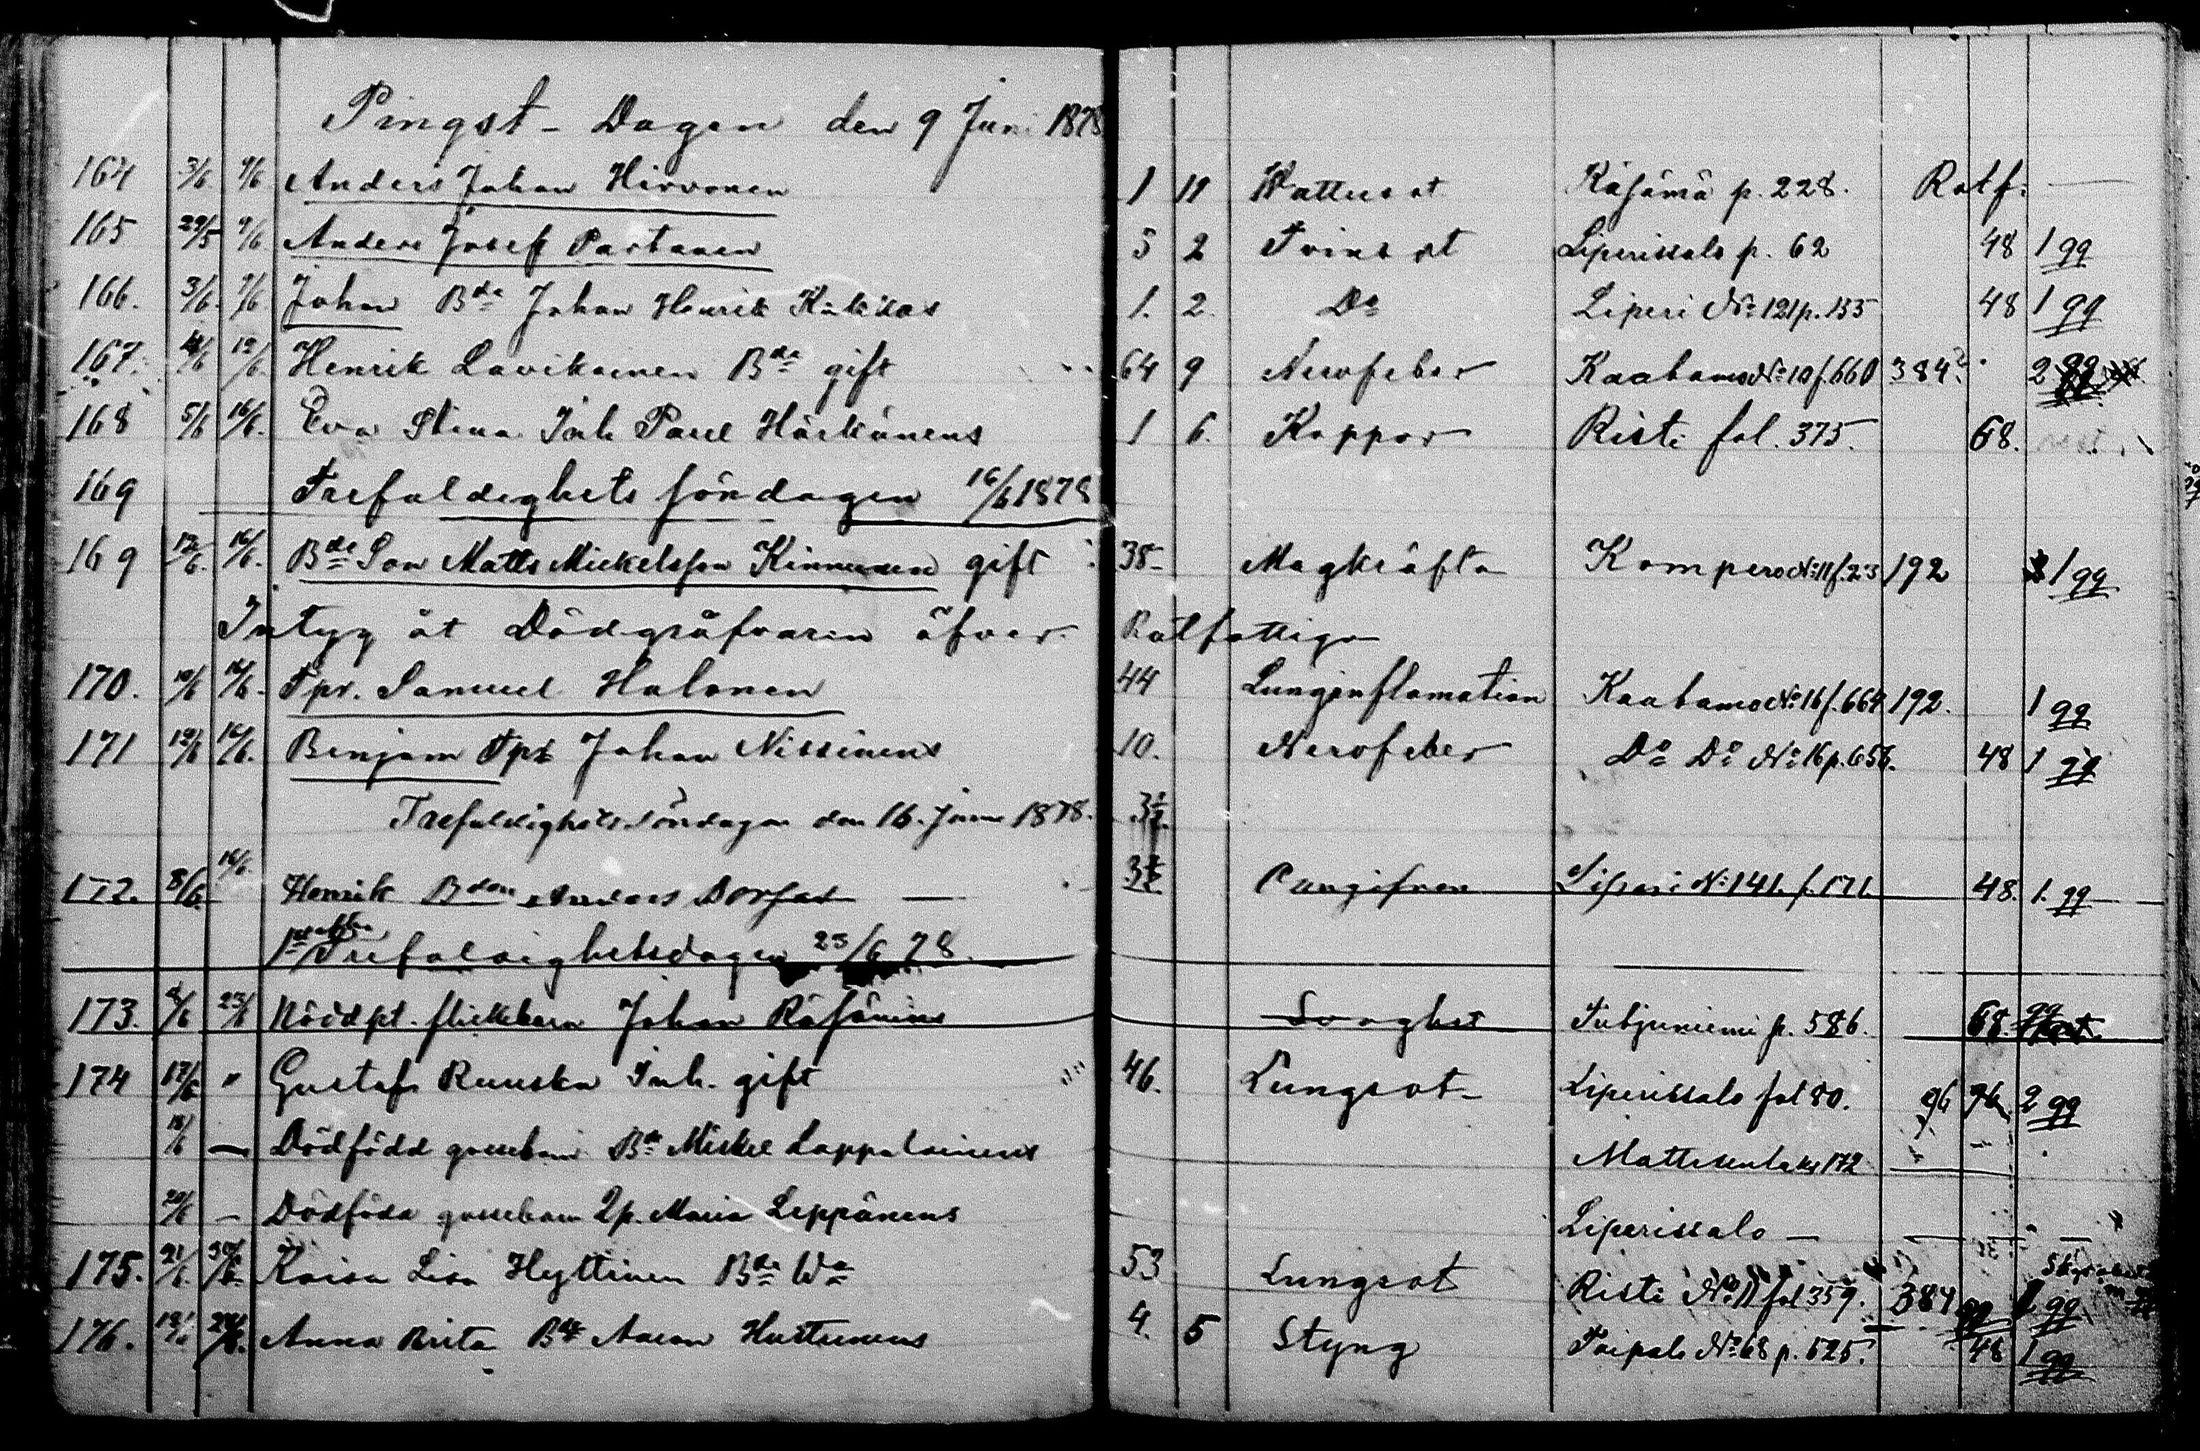 Pingst-Dagen den 9 Juni 1878
164 3/6 9/6 Anders Johan Hirvonen 1 11 Wattusot Käsämä p. 228. Rotf. —
165 29/5 9/6 Anders Josef Partanen 5 2 Tvinsot Liperissalo p. 62 48 1 gg
166. 3/6. 9/6 Johan Bde Johan Henrik 1. 2. Do Liperi No 121 p. 155 48 1 gg
167. 12/6. Henrik Lavikainen Bde gift 64 9 Nervfeber Kaatamo No 10 f. 660 384 2 gg
168 5/6 16/6. Eva Stina Inh Paul Härkönens 1 6. Koppor Risti fol. 375. 68.
169 Trefaldighets söndagen 16/6 1878
169 12/6. 16/6. Bde Son Matts Mickelsson Kinnunen gift 38- Magkräfta Kompero No 11 f. 23 192 1 gg
Intyg åt Dödgräfvaren öfver Rotfattiga
170. 10/6 16/6. Tpr. Samuel Halonen 44 Lunginflamation Kaatamo No 16 f. 664 192. 1 gg
171 12/6 16/6. Benjam Tpr Johan Nissinens 10. Nervfeber Do Do No 16 p. 656. 48 1 gg
Trefaldighets söndagen den 16. Juni 1878.
172. 8/6 16/6. Henrik Bden Anders — Liperi No 141. f. 171. 48. 1. gg
Trefaldighetsdagen 23/6 78.
173. 23/6 Nöddpt. flickbarn Johan Räsänens Taipaleniemi p. 586. 68. gg
174 17/6 " Gustaf Ruuska Inh. gift 46. Lungsot Liperissalo fol 80. 96 96 2 gg
18/6 — Dödfödd gossebarn Bde Mickel Lappalainens 172
20/6 — Dödföda gossebarn Maria Leppänens Liperissalo —
175. 21/6. Kaisa Lisa Hyttinen Bde Wa 53 Lungsot Risti No 11 fol 359. 384 gg
176. Anna Brita Bde Hurtunens 4. 5 Styng Taipale No 68 p. 525. 48 1 gg